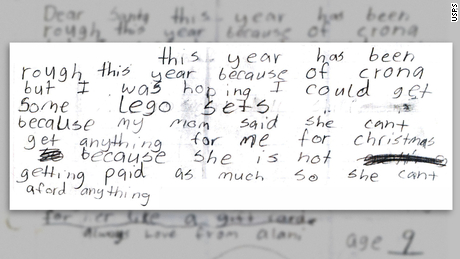 Dear Santa this year has been
rough this year because of crona
this year has been
rough this year because of crona
but I was hoping I could get
some lego sets
because my mom said she cant
get anything for me for christmas
because she is not
getting paid as much so she cant
aford anything
for her like a gift card
always Love from alani
age 9
USPS